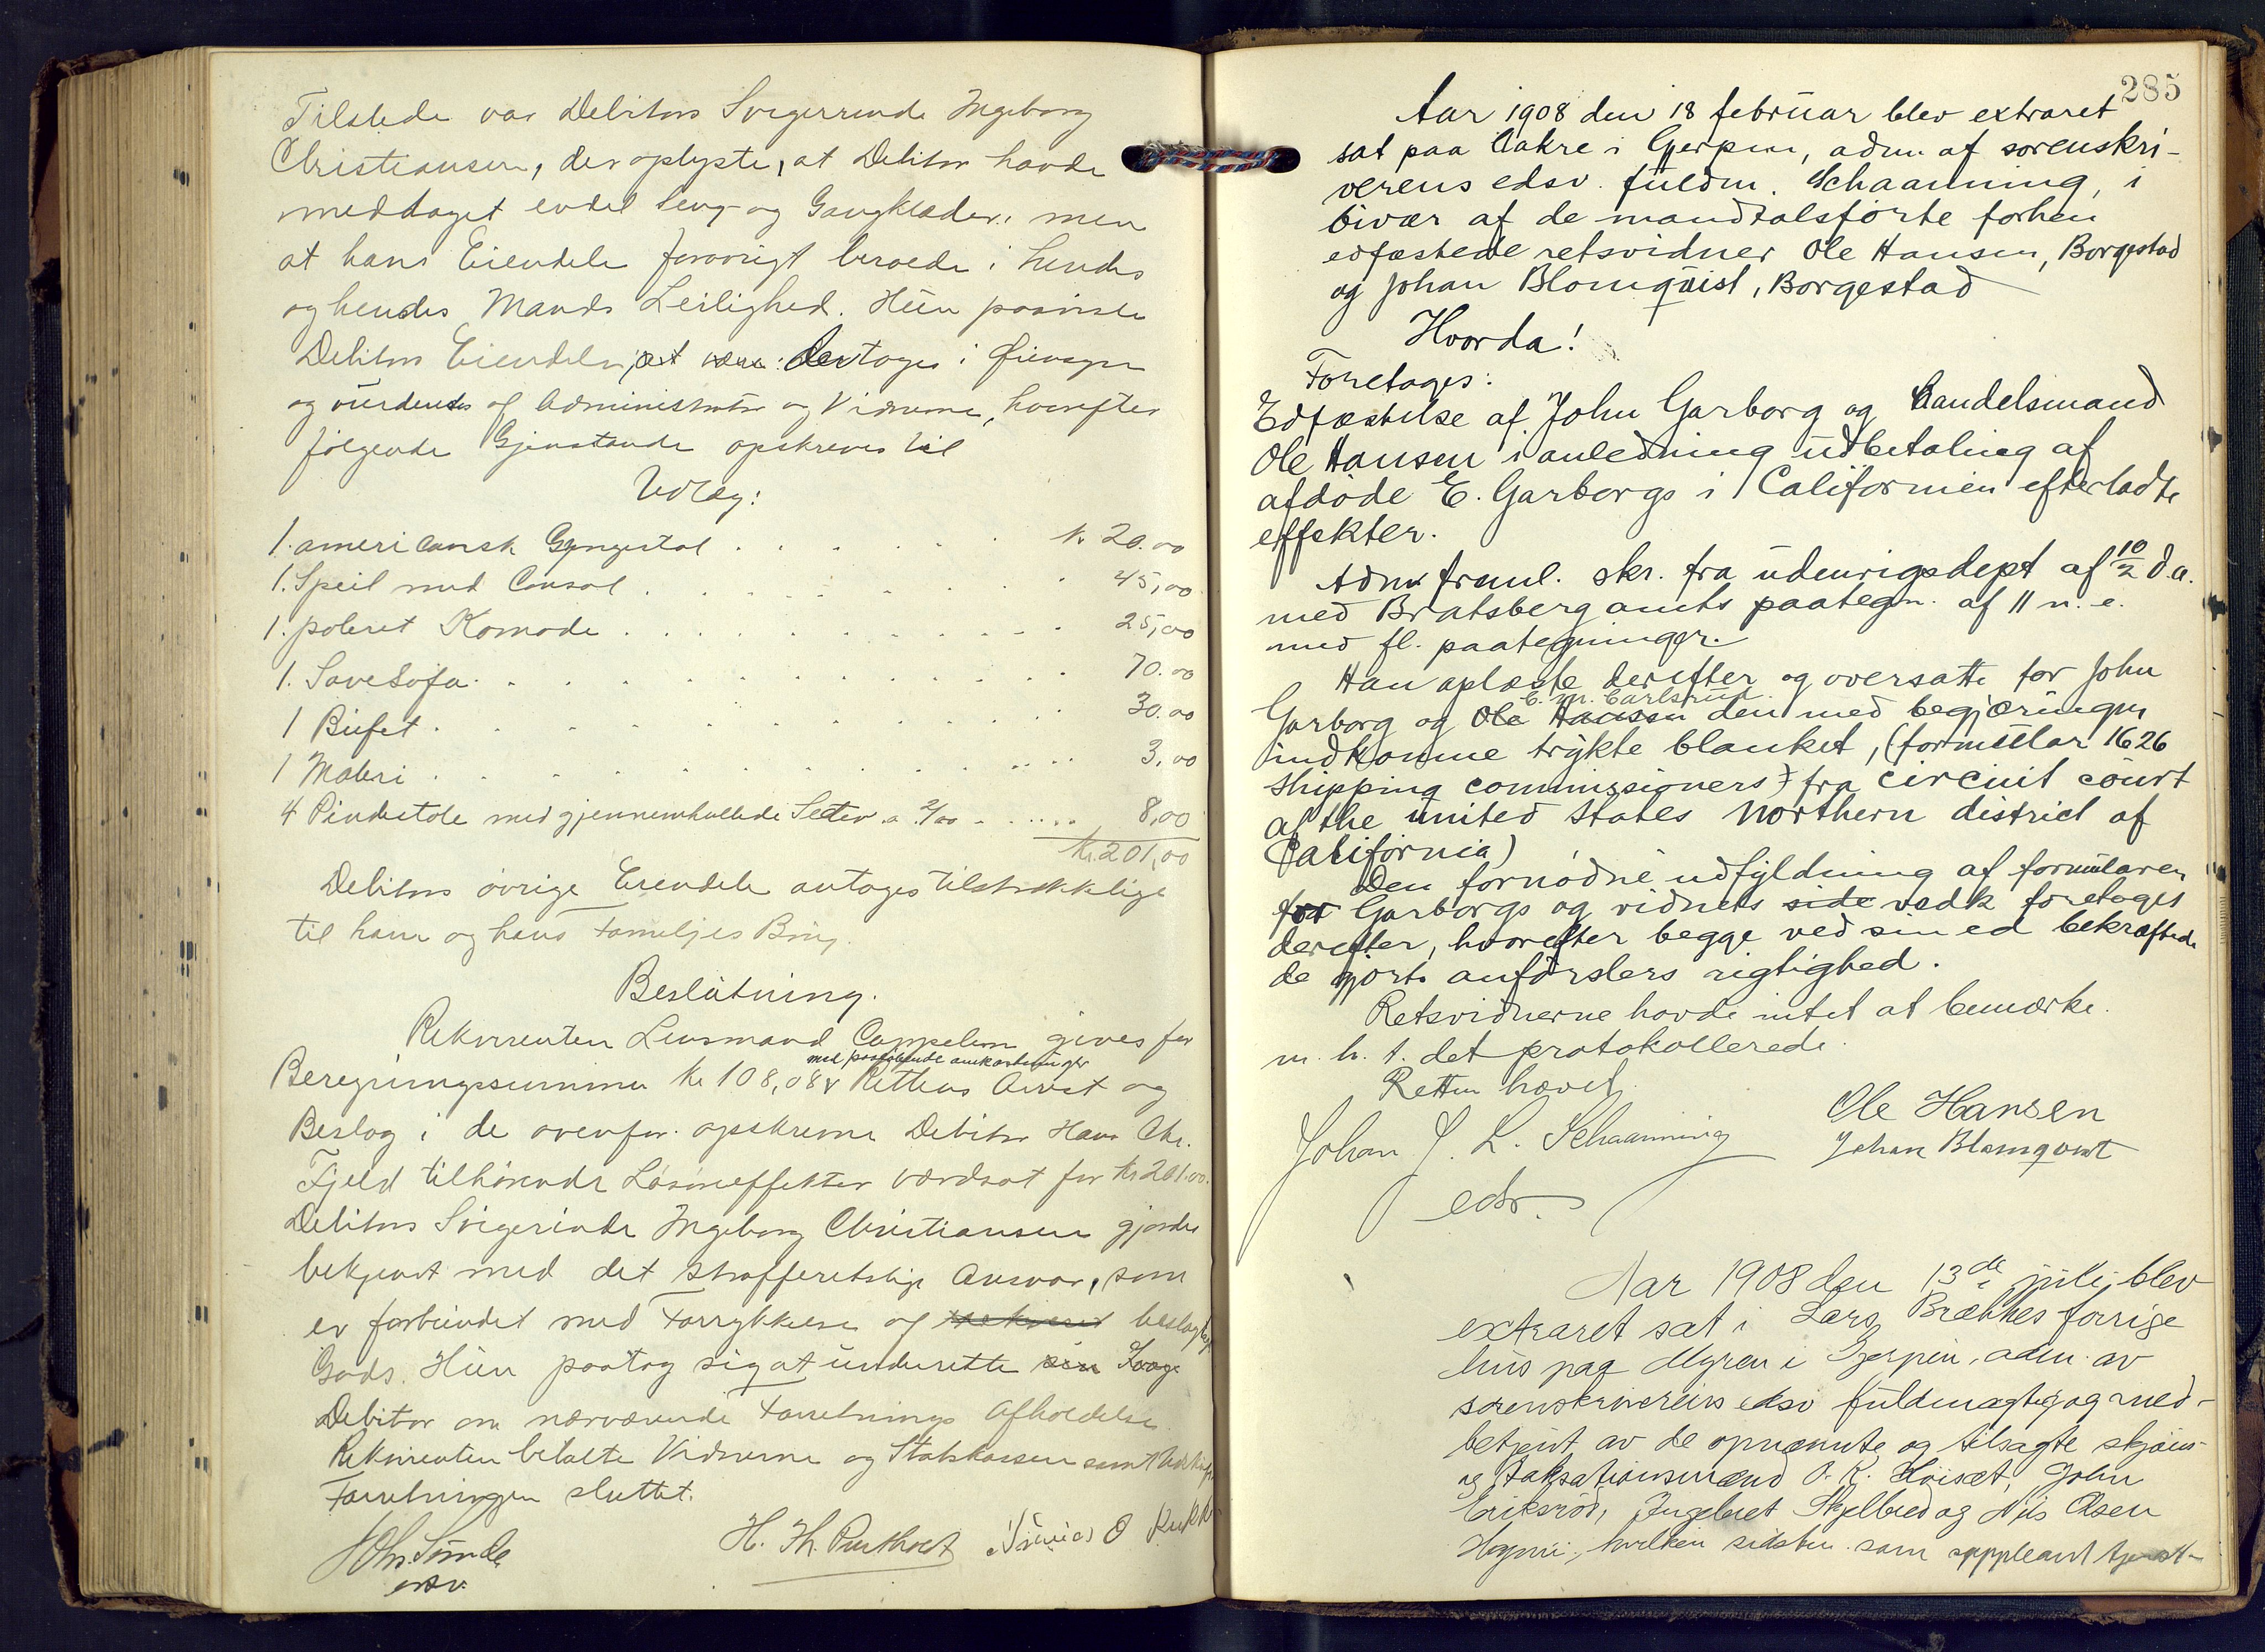 Tilstede var Debitors Svigerinde Ingeborg
Christiansen, der oplyste, at Debitor havde
meddaget endel Seng- og Gangklæder, men
at hans Eiendele forøvrigt beroede i hendes
og hendes Mands Leilighed. Hun paaviste
Debitors Eiendele, der toges i Øiensyn
og vurderedes af Administrator og Vidnerne, hvorefter
følgende Gjenstande opskreves til
Udlæg:
1. americansk Gyngestol . . . . . kr. 20.00
1. Speil med Consol . . . . . . 45,00
1. poleret Komode . . . . . . . 25,00
1. SoveSofa . . . . . . . . 70.00
1 Bufet . . . . . . . . 30.00
1 Maleri . . . . . . . . 3,00
4 Pindestole med gjennemhullede Seter a 2/00 . . . . . 8,00
kr. 201,00
Debitors øvrige Eiendele antages tilstrækkelige
til hans og hans Familjes Brug.
Beslutning.
Rekvirenten Lensmand Cappelen gives for
med paaløbende omkostninger
Beregningssummen kr 108,08 Rettens Arrest og
Beslag i de ovenfor opskrevne Debitor Hans Chr.
Fjeld tilhørende Løsøreeffekter værdsat for kr 201.00.
Debitors Svigerinde Ingeborg Christiansen gjordes
bekjendt med det strafferetslige Ansvar, som
er forbundet med Forrykkelse af beslaglagt
Gods. Hun paatog sig at underrette
Debitor om nærværende Forretnings Afholdelse.
Rekvirenten betalte Vidnerne og Statskassen samt
Forretningen sluttet.
edsv.
285
Aar 1908 den 18 februar blev extraret
sat paa Aakre i Gjerpen, adm. af sorenskri-
verens edsv. fuldm. Schaanning, i
bivær af de mandtalsførte forhen
edfæstede retsvidner Ole Hansen, Borgestad
og Johan Blomquist, Borgestad
Hvorda!
Foretages:
Edfæstelse af John Garborg og Handelsmand
Ole Hansen i anledning udbetaling af
afdøde E. Garborgs i Californien efterladte
effekter.
Adm framl. skr. fra udenrigsdept af 10/2 d.a.
med Bratsberg amts paategn. af 11 n. e.
med fl. paategninger.
Han oplæste derefter og oversatte for John
C. M. Carlsrud
Garborg og Ole Hansen den med begjæringen
indkomne trykte blanket, (formular 1626
Shipping commissioners) fra circuit court
of the united States Northern district of
California)
Den fornødne udfyldning af formularen
for Garborgs og vidnets side vedk foretoges
derefter, hvorefter begge ved sin ed bekræftede
de gjorte anførslers rigtighed.
Retsvidnerne havde intet at bemærke
m. h. t. det protokollerede.
Retten hævet
Johan J. L. Schaanning
edsv.
Ole Hansen
Johan Blomqvist
Aar 1908 den 13de juli, blev
extraret sat i Lars Brækkes forrige
hus paa Myren i Gjerpen, adm. av
sorenskriverens edsv fuldmægtig og med-
betjent av de opnævnte og tilsagte skjøns-
og taksationsmænd O. K. Høiset, John
Eriksrød, Ingebret Skjelbred og Nils Olsen
hvilken sidste som suppleant